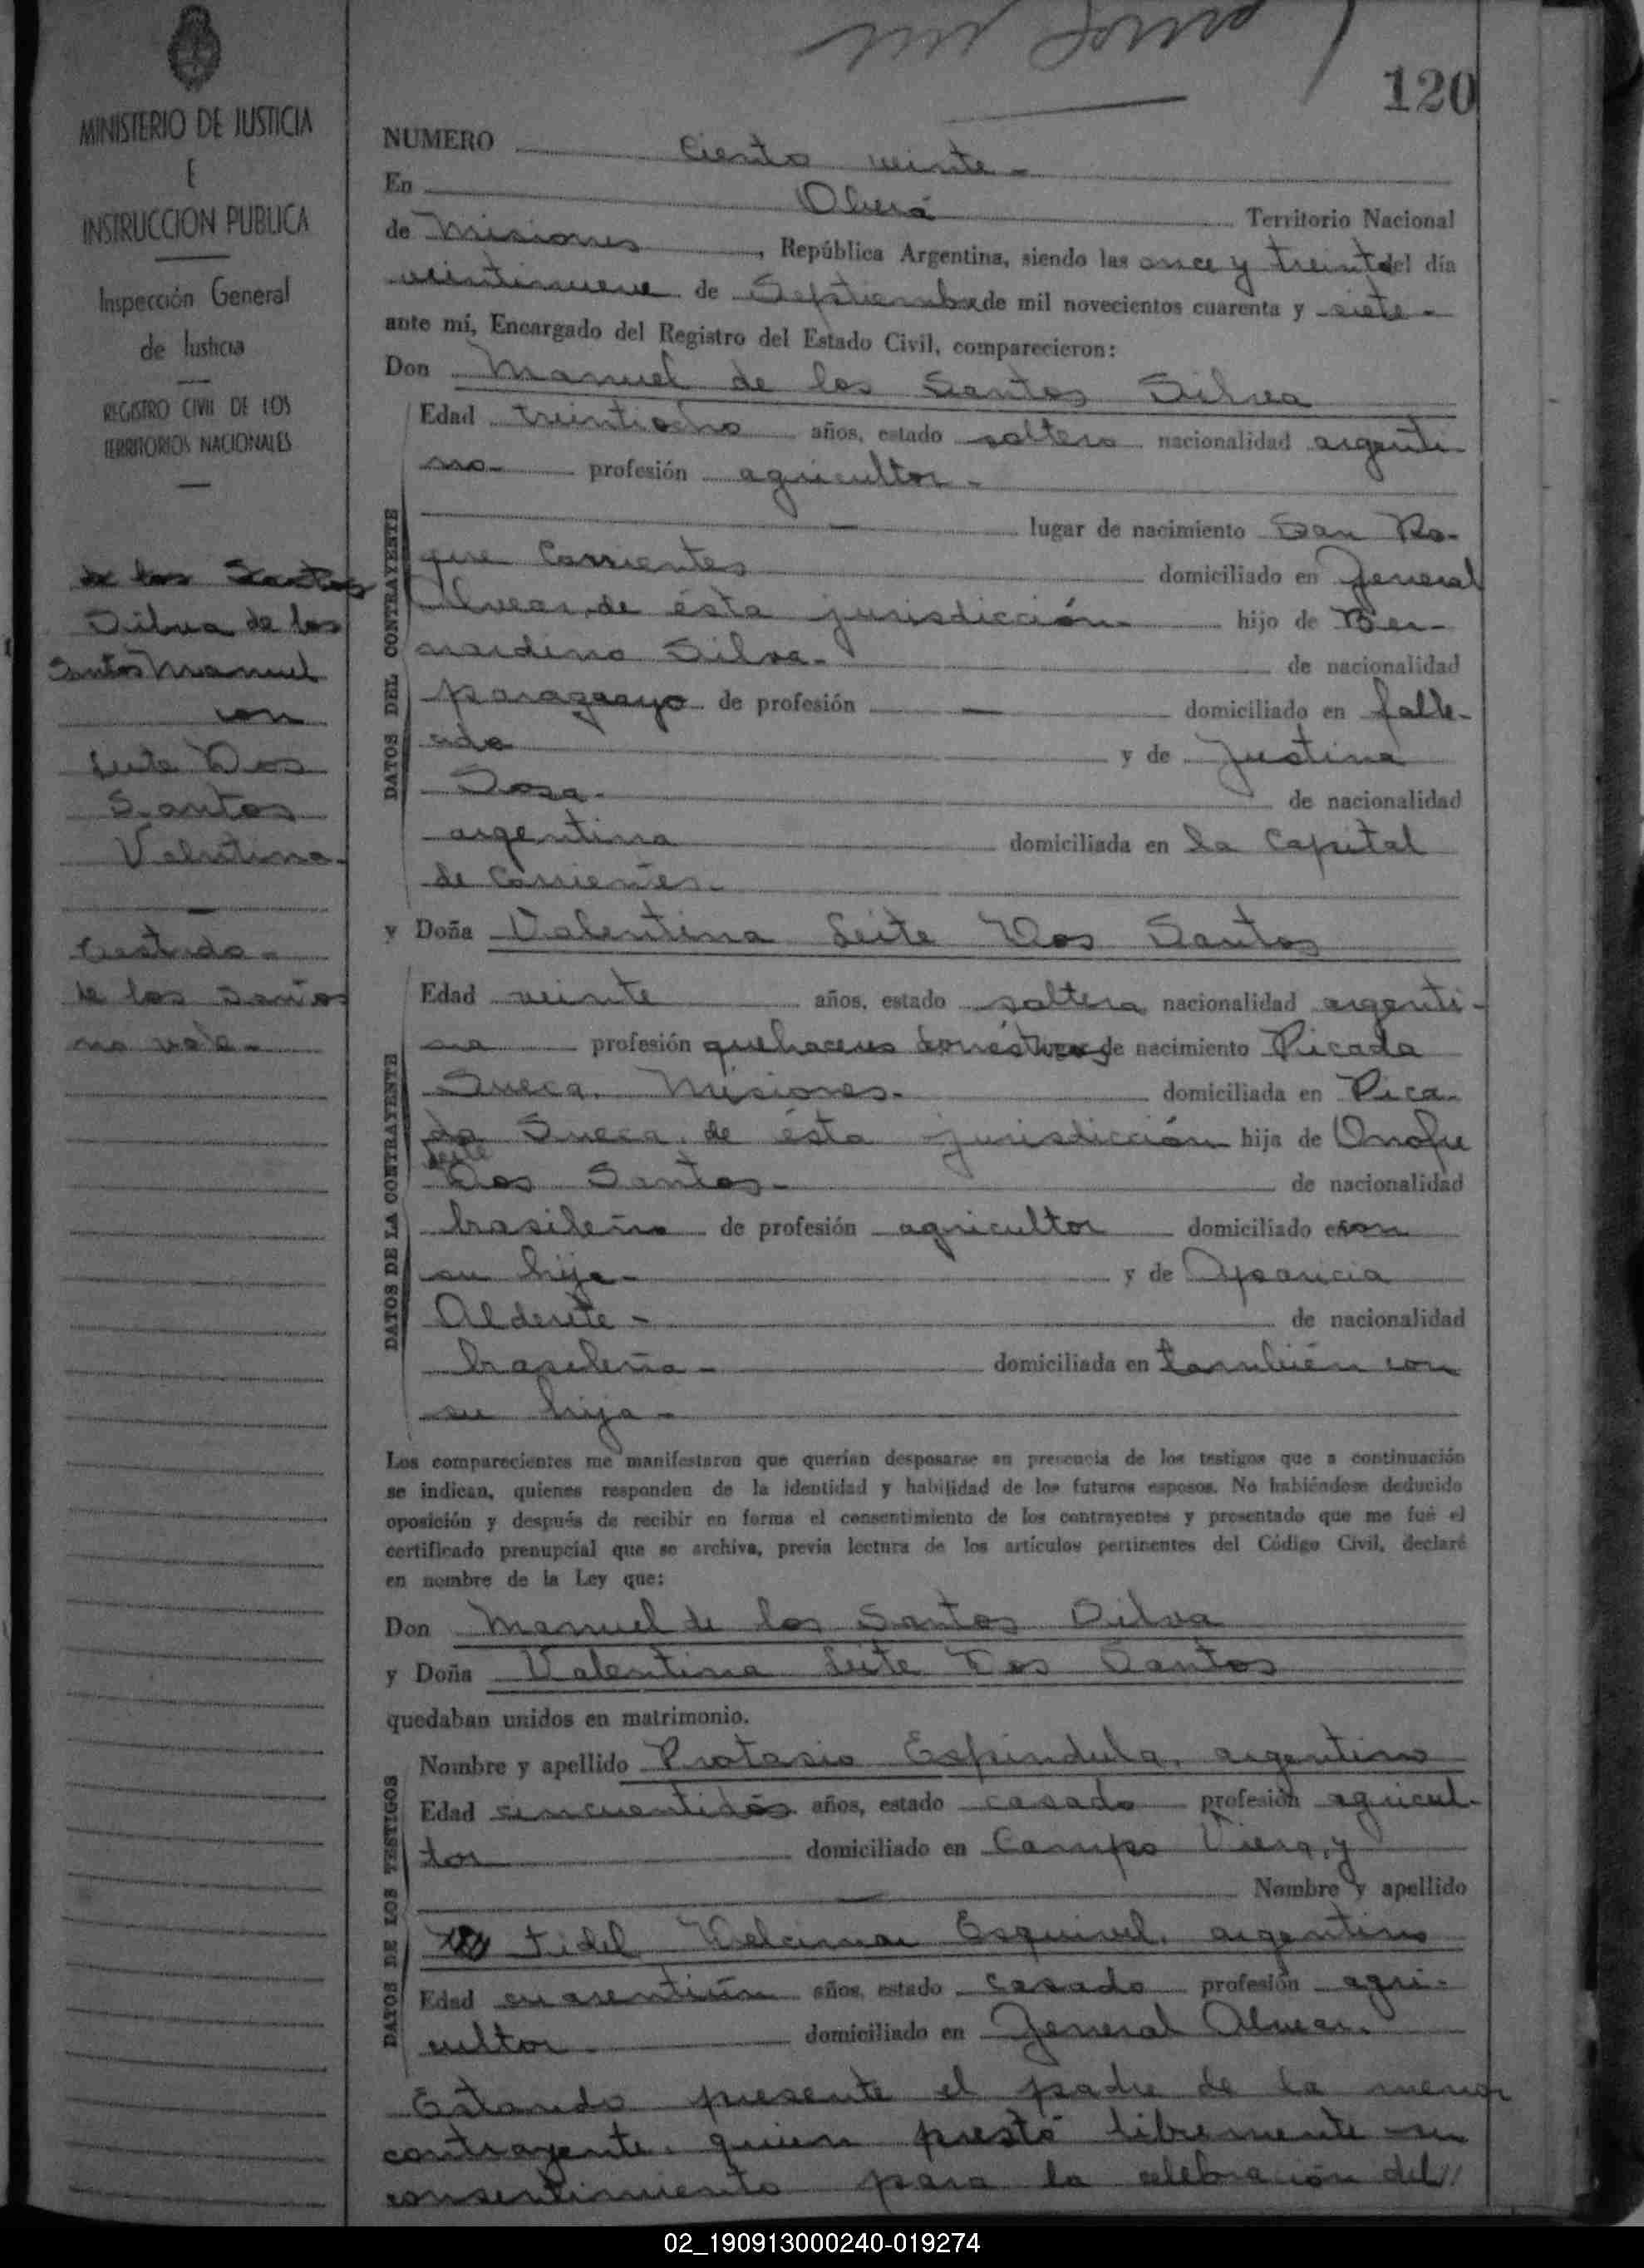 120
MINISTERIO DE JUSTICIA
E
INSTRUCCION PUBLICA
Inspección General
de Justicia
REGISTRO CIVIL DE LOS
TERRITORIOS NACIONALES
de los Santos
Silva de los
Santos Manuel
con
Leite Dos
Santos
Valentina.
Testado-
de los Santos
no vale-
NUMERO Ciento veinte-
En Oberá Territorio Nacional
de Misiones, República Argentina, siendo las once y treinta del día
veintinueve de Septiembre de mil novecientos cuarenta y siete-
ante mí, Encargado del Registro del Estado Civil, comparecieron:
Don Manuel de los Santos Silva
DATOS DEL CONTRAYENTE
Edad treintiocho años, estado soltero nacionalidad argenti
no- profesión agricultor-
lugar de nacimiento San Ro-
que Corrientes domiciliado en General
Alvear, de ésta jurisdicción- hijo de Ber-
nardino Silva- de nacionalidad
paraguayo de profesión — domiciliado en falle-
cido y de Justina
Sosa- de nacionalidad
argentina domiciliada en la Capital
de Corrientes-
y Doña Valentina Leite Dos Santos
DATOS DE LA CONTRAYENTE
Edad veinte años, estado soltera nacionalidad argenti-
na profesión quehaceres domésticos de nacimiento Picada
Sueca, Misiones- domiciliada en Pica-
da Sueca, de ésta jurisdicción hija de Onofre
Leite
Dos Santos- de nacionalidad
brasileño de profesión agricultor domiciliado en con
su hija- y de Aparicia
Alderete- de nacionalidad
brasileña- domiciliada en también con
su hija-
Los comparecientes me manifestaron que querían desposarse en presencia de los testigos que a continuación
se indican, quienes responden de la identidad y habilidad de los futuros esposos. No habiéndose deducido
oposición y después de recibir en forma el consentimiento de los contrayentes y presentado que me fué el
certificado prenupcial que se archiva, previa lectura de los artículos pertinentes del Código Civil, declaré
en nombre de la Ley que:
Don Manuel de los Santos Silva
y Doña Valentina Leite Dos Santos
quedaban unidos en matrimonio.
DATOS DE LOS TESTIGOS
Nombre y apellido Protasio Espindula, argentino
Edad cincuentidós años, estado casado profesión agricul-
tor domiciliado en Campo Viera, y
Nombre y apellido
Fidel Esquivel, argentino
Edad cuarentiún años, estado casado profesión agri-
cultor domiciliado en General Alvear.
Estando presente el padre de la menor
contrayente, quien prestó libremente su
consentimiento para la celebración del//
02_190913000240-019274